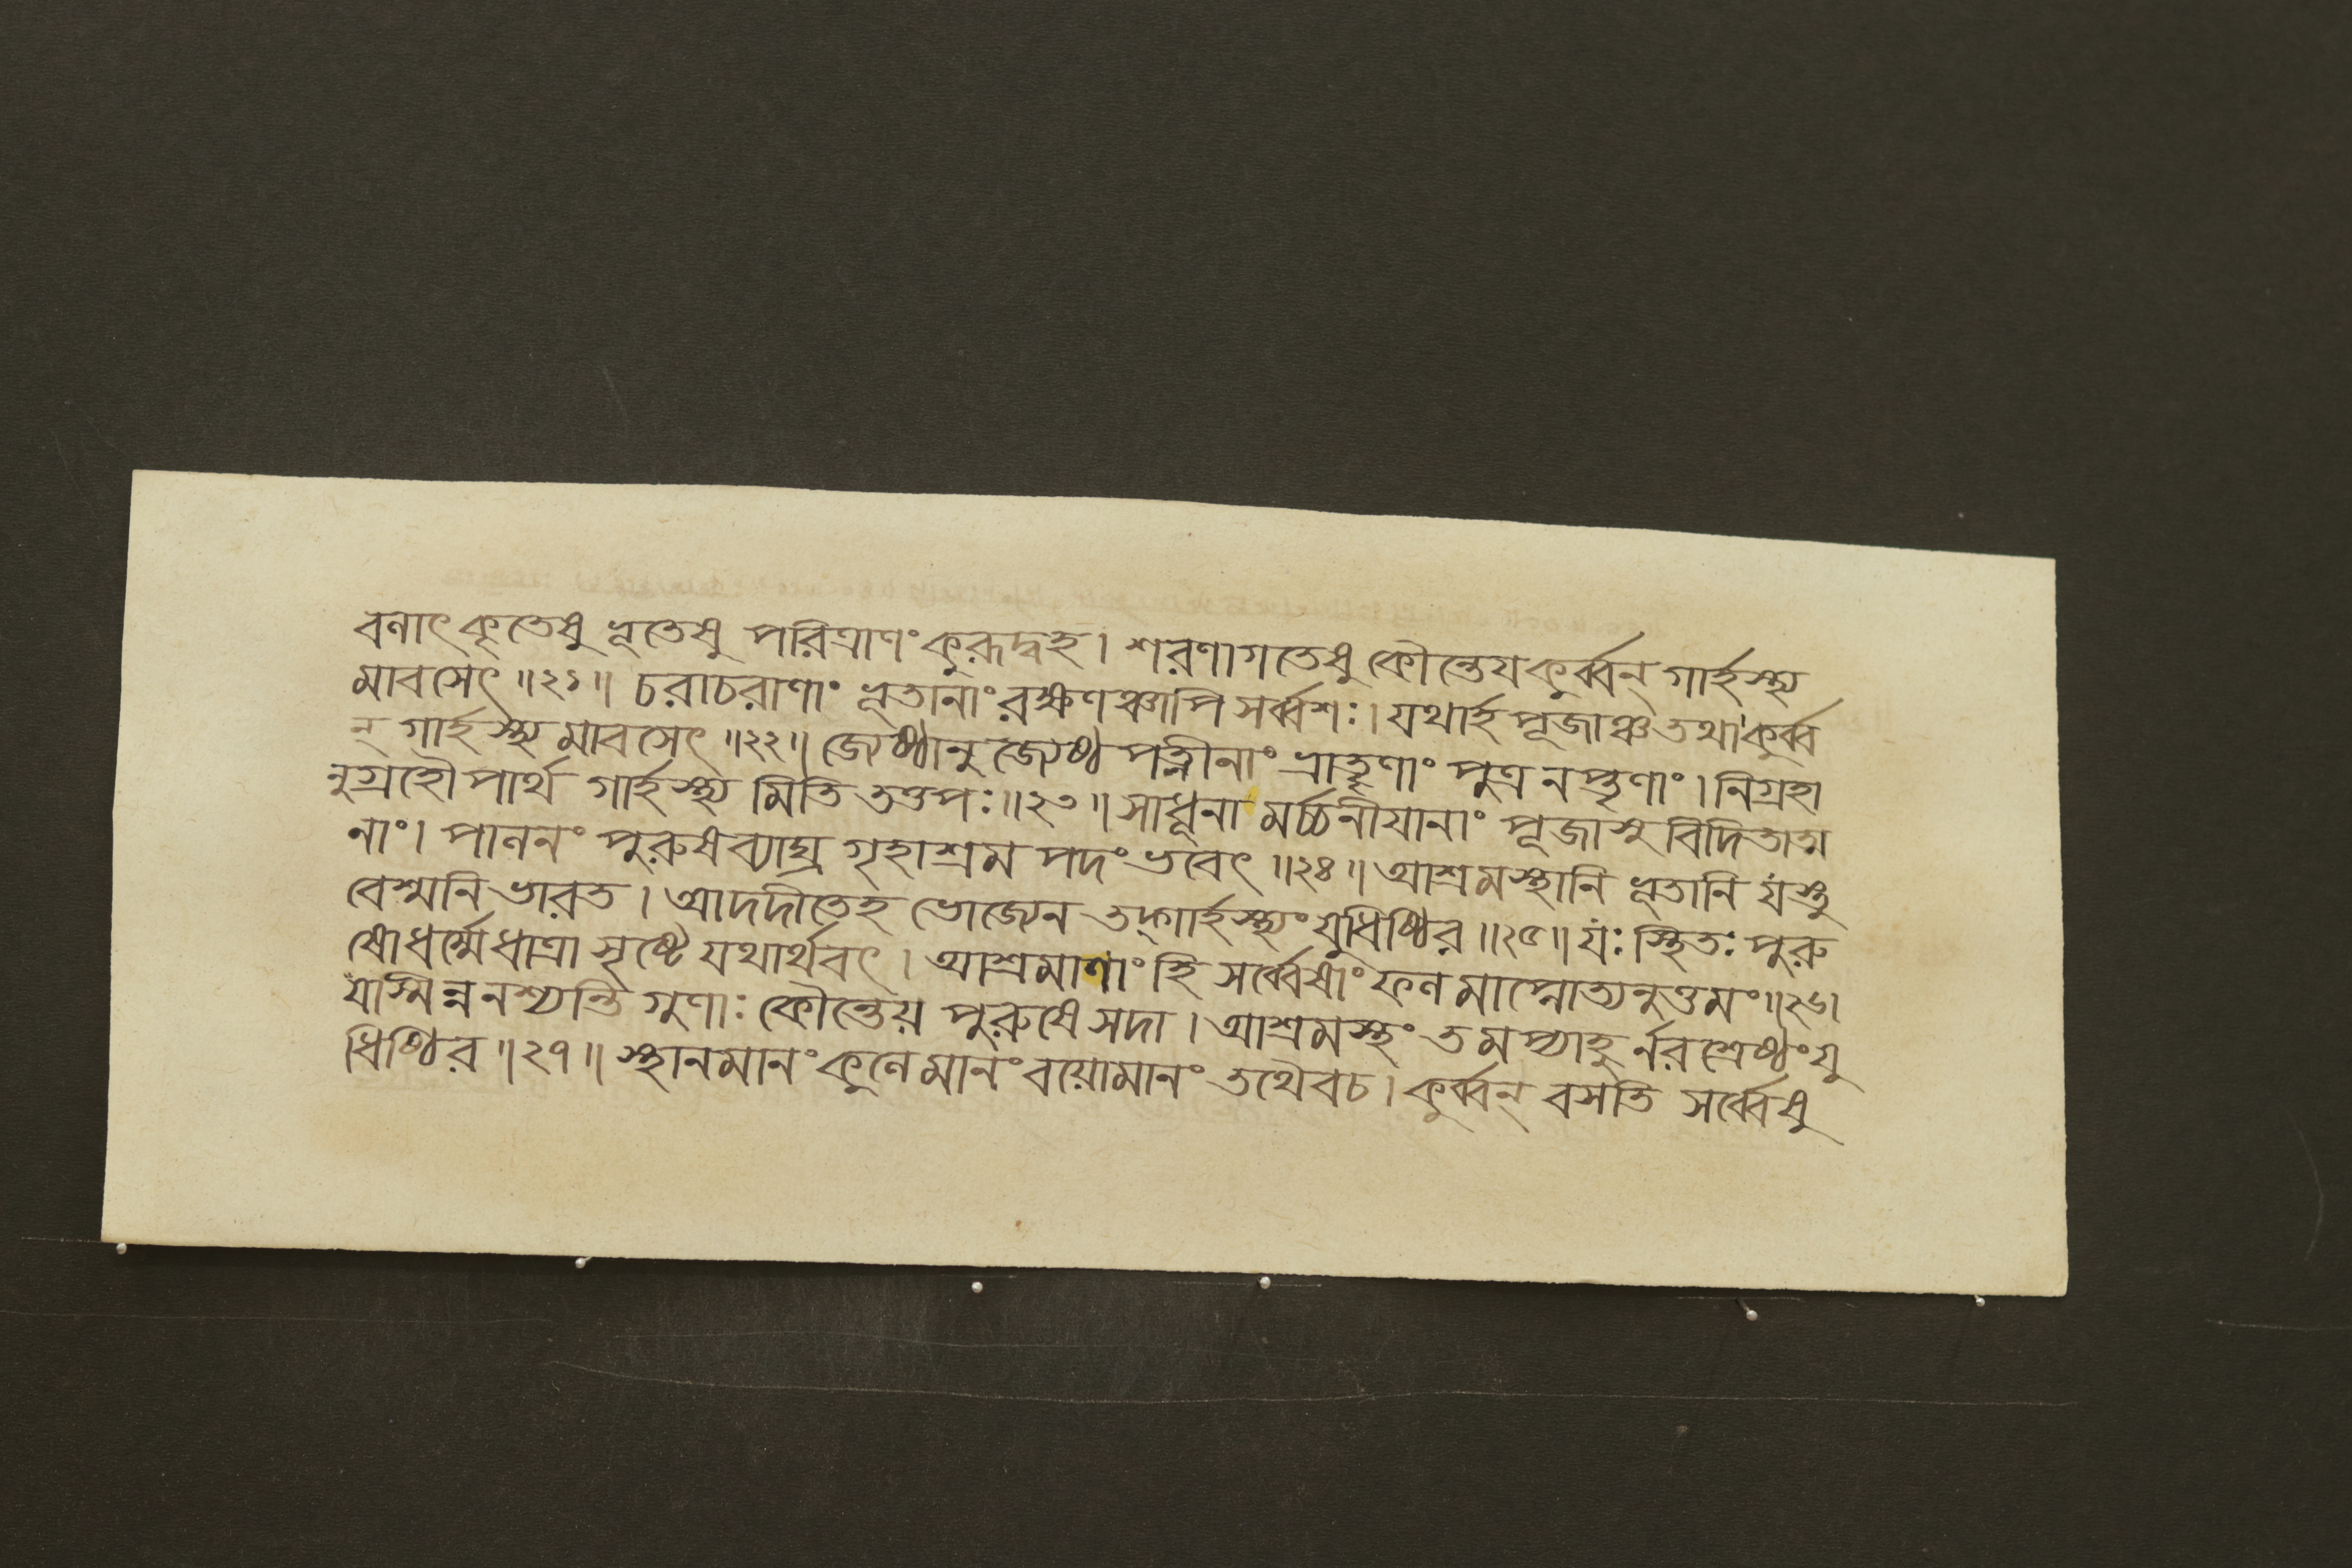 বলাৎ কৃতেষু ভূতেষু পরিত্রাণং কুরূদ্বহ। শরণাগতেষু কৌন্তেয কুর্ব্বন্ গার্হস্থ্য
মাবসেৎ॥২১॥ চরাচরাণাং ভূতানাং রক্ষণঞ্চাপি সর্ব্বশঃ। যথার্হ পূজাঞ্চ তথা কুর্ব্ব
ন্ গার্হস্থ্য মাবসেৎ॥২২॥ জ্যেষ্ঠানুজ্যেষ্ঠ পত্নীনাং ভ্রাতৄণাং পুত্র নপ্তৃণাং। নিগ্রহা
নুগ্রহৌ পার্থ গার্হস্থ্য মিতি তত্তপঃ॥২৩॥ সাধূনা মর্চ্চনীযানাং পূজাসু বিদিতাত্ম
নাং। পালনং পুরুষব্যাঘ্র গৃহাশ্রম পদং ভবেৎ॥২৪॥ আশ্রমস্থানি ভূতানি যস্তু
বেশ্মনি ভারত। আদদীতেহ ভোজ্যেন তদ্গার্হস্থ্যং যুধিষ্ঠির॥২৫॥ যঃ স্থিতঃ পুরু
ষো ধর্ম্মে ধাত্রা সৃষ্টে যথার্থবৎ। আশ্রমাণাং হি সর্ব্বেষাং ফল মাপ্নোত্যনুত্তমং॥২৬।
যস্মিন্ন নশ্যন্তি গুণাঃ কৌন্তেয় পুরুষে সদা। আশ্রমস্থং তমপ্যাহু র্নরশ্রেষ্ঠং যু
ধিষ্ঠির॥২৭॥ স্থানমানং কুলে মানং বয়োমানং তথৈবচ। কুর্ব্বন্ বসতি সর্ব্বেষু